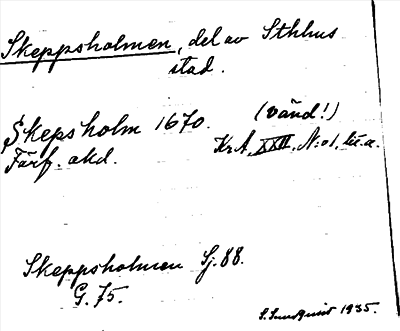 Skeppsholmen, del av Sthlms
stad.
Skepsholm 1670. (vänd!)
Förf. akd. KrA, XXII, N:o 1, lit. a.
Skeppsholmen Sj. 88.
G. 75.
S. Sundquist 1935.